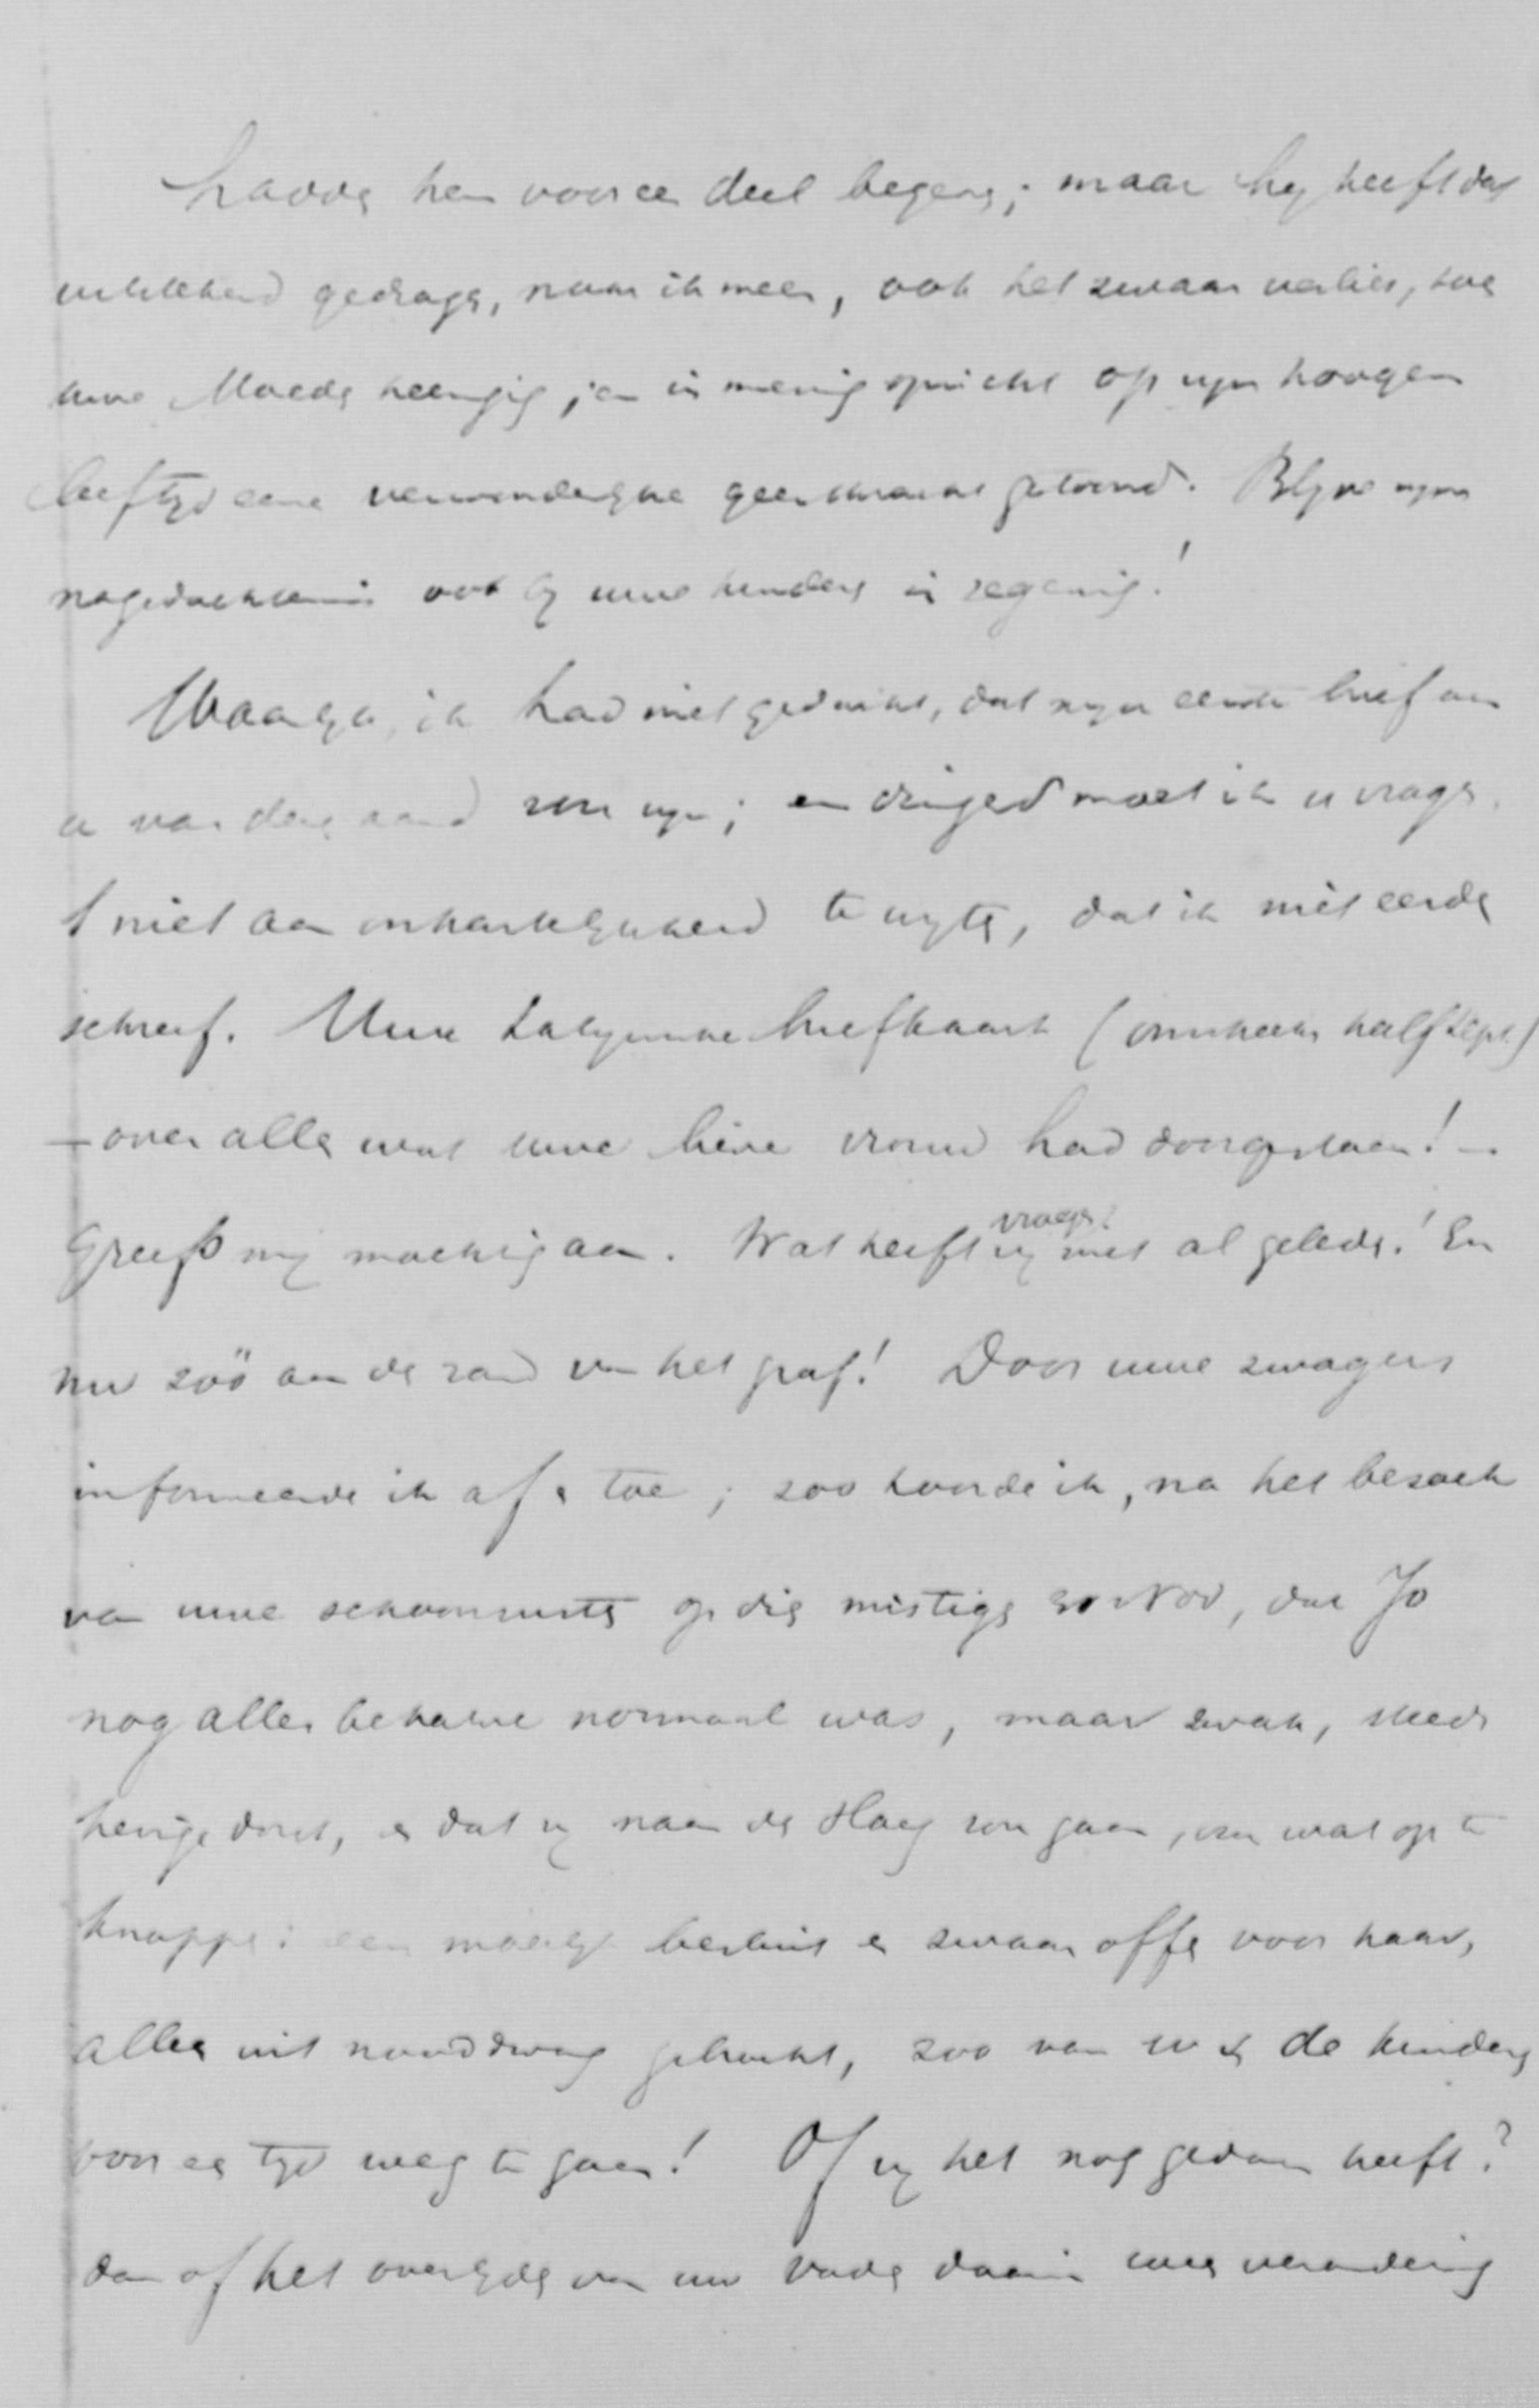 hadde hem voor een deel begeven; maar hy heeft dat
gedragen, naar ik meen, ook het zwaar verlies, toen
uwe Moeder heenging, en in menig opzicht op zyn hoogen
leeftyd eene verwonderlyke geestkracht getoond. Blyve zyn
nagedachtenis ook by uwe kinderen in zegening!
Waarlyk, ik had niet gedacht, dat myn eerste brief aan
u van dezen aard zou zyn; en dringend moet ik u vragen,
't niet aan onhartelykheid te wyten, dat ik niet eerder
schreef. Uwe Latynsche briefkaart (omstreeks half Sept.)
– over alles wat uwe lieve vrouw had doorgestaan! –
Greep my machtig aan. Wat heeft zy vroeger niet al geleden! En
nu zóó aan den rand van het graf! Door uwe zwagers
informeerde ik af en toe; zoo hoorde ik, na het bezoek
van uwe schoonzuster op dien mistigen Nov, dat Jo
nog alles behalve normaal was, maar zwak, steeds
hevigen dorst, en dat zy naar den Haag zou gaan, om wat op te
knappen: een moeilyk besluit en zwaar offer voor haar,
alleen uit nooddwang gebracht, zoo van u en de kinderen
voor een tyd weg te gaan! Of zy het nog gedaan heeft?
dan of het overlyden van uw vader daarin weer verandering